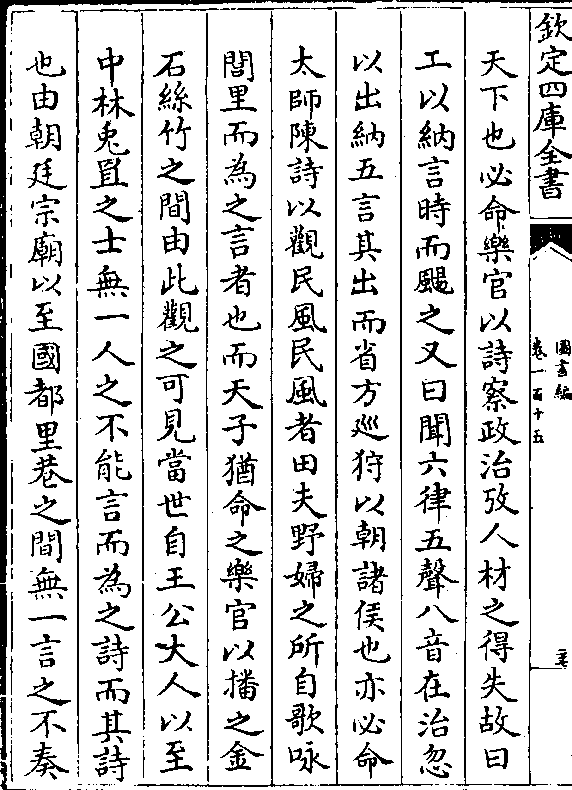 欽定四庫全書
圖書編
卷一百十五
天下也必命樂官以詩察政治攷人材之得失故曰
工以納言時而颺之又曰聞六律五聲八音在治忽
以出納五言其出而省方廵狩以朝諸侯也亦必命
太師陳詩以觀民風民風者田夫野婦之所自歌咏
閭里而為之言者也而天子猶命之樂官以播之金
石絲竹之間由此觀之可見當世自王公大人以至
中林兎罝之士無一人之不能言而為之詩而其詩
也由朝廷宗廟以至國都里巷之間無一言之不奏